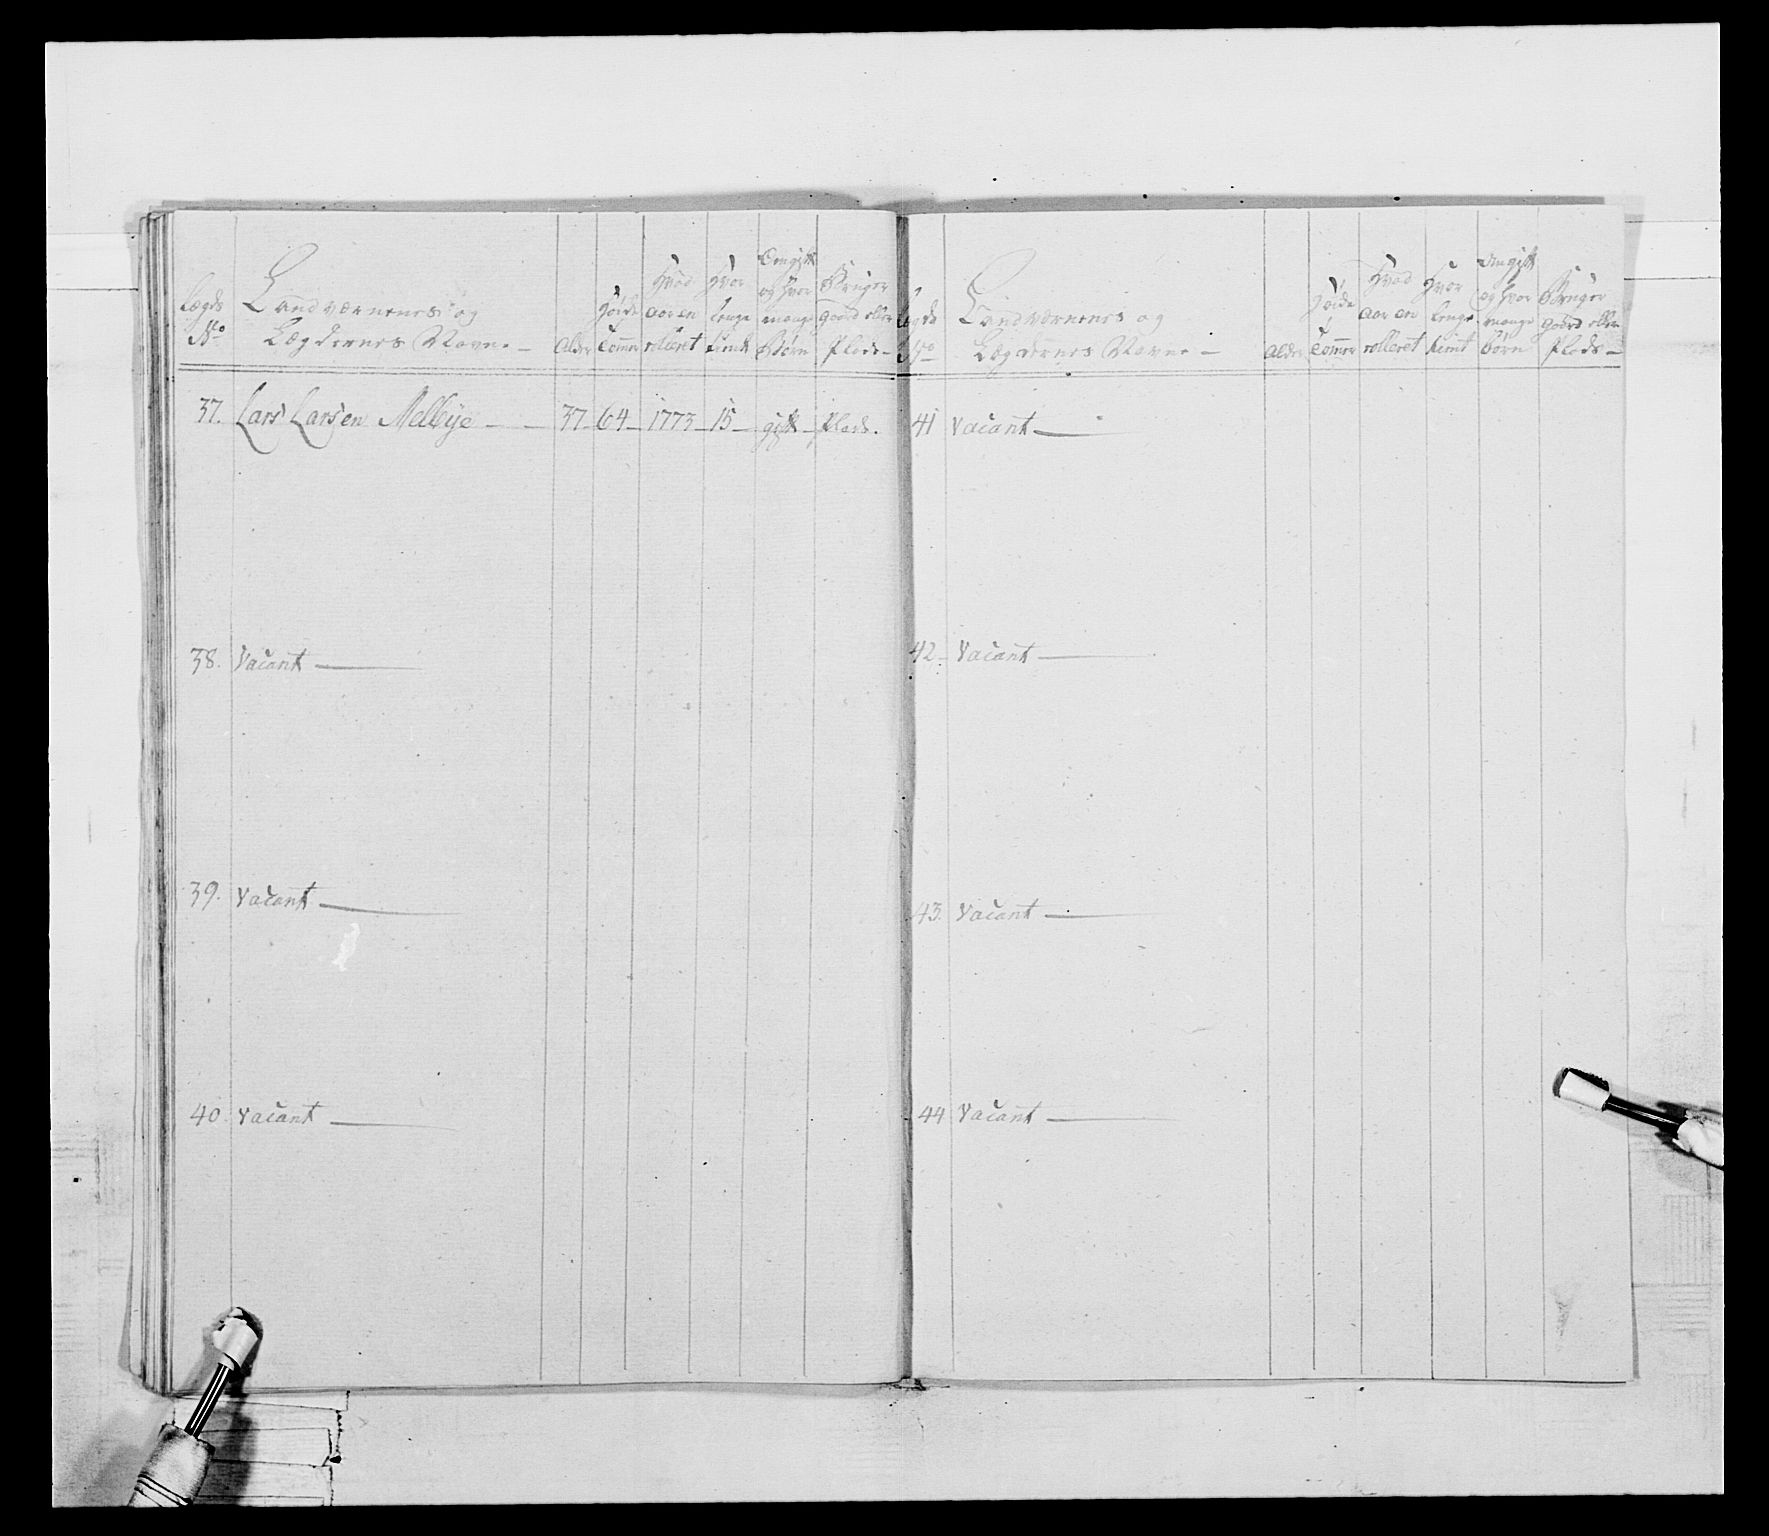 Lægds No
Landværnenes og
Lægdernes Navne
Alder
Høide i Tommer
Hvad aar en rolleret
Hvor lenge tient
Om gift og hvor mange Børn
Bruger gaard eller Plads
37. Lars Larsen Melbye 37 64 1773 15 gift Plads.
38. Vacant
39. Vacant
40. Vacant
Lægds No
Landværnenes og
Lægdernes Navne
Alder
Høide i Tommer
Hvad aar en rolleret
Hvor lenge tient
Om gift og hvor mange børn
Bruger gaard eller Plads
41 Vacant
42 Vacant
43. Vacant
44 Vacant